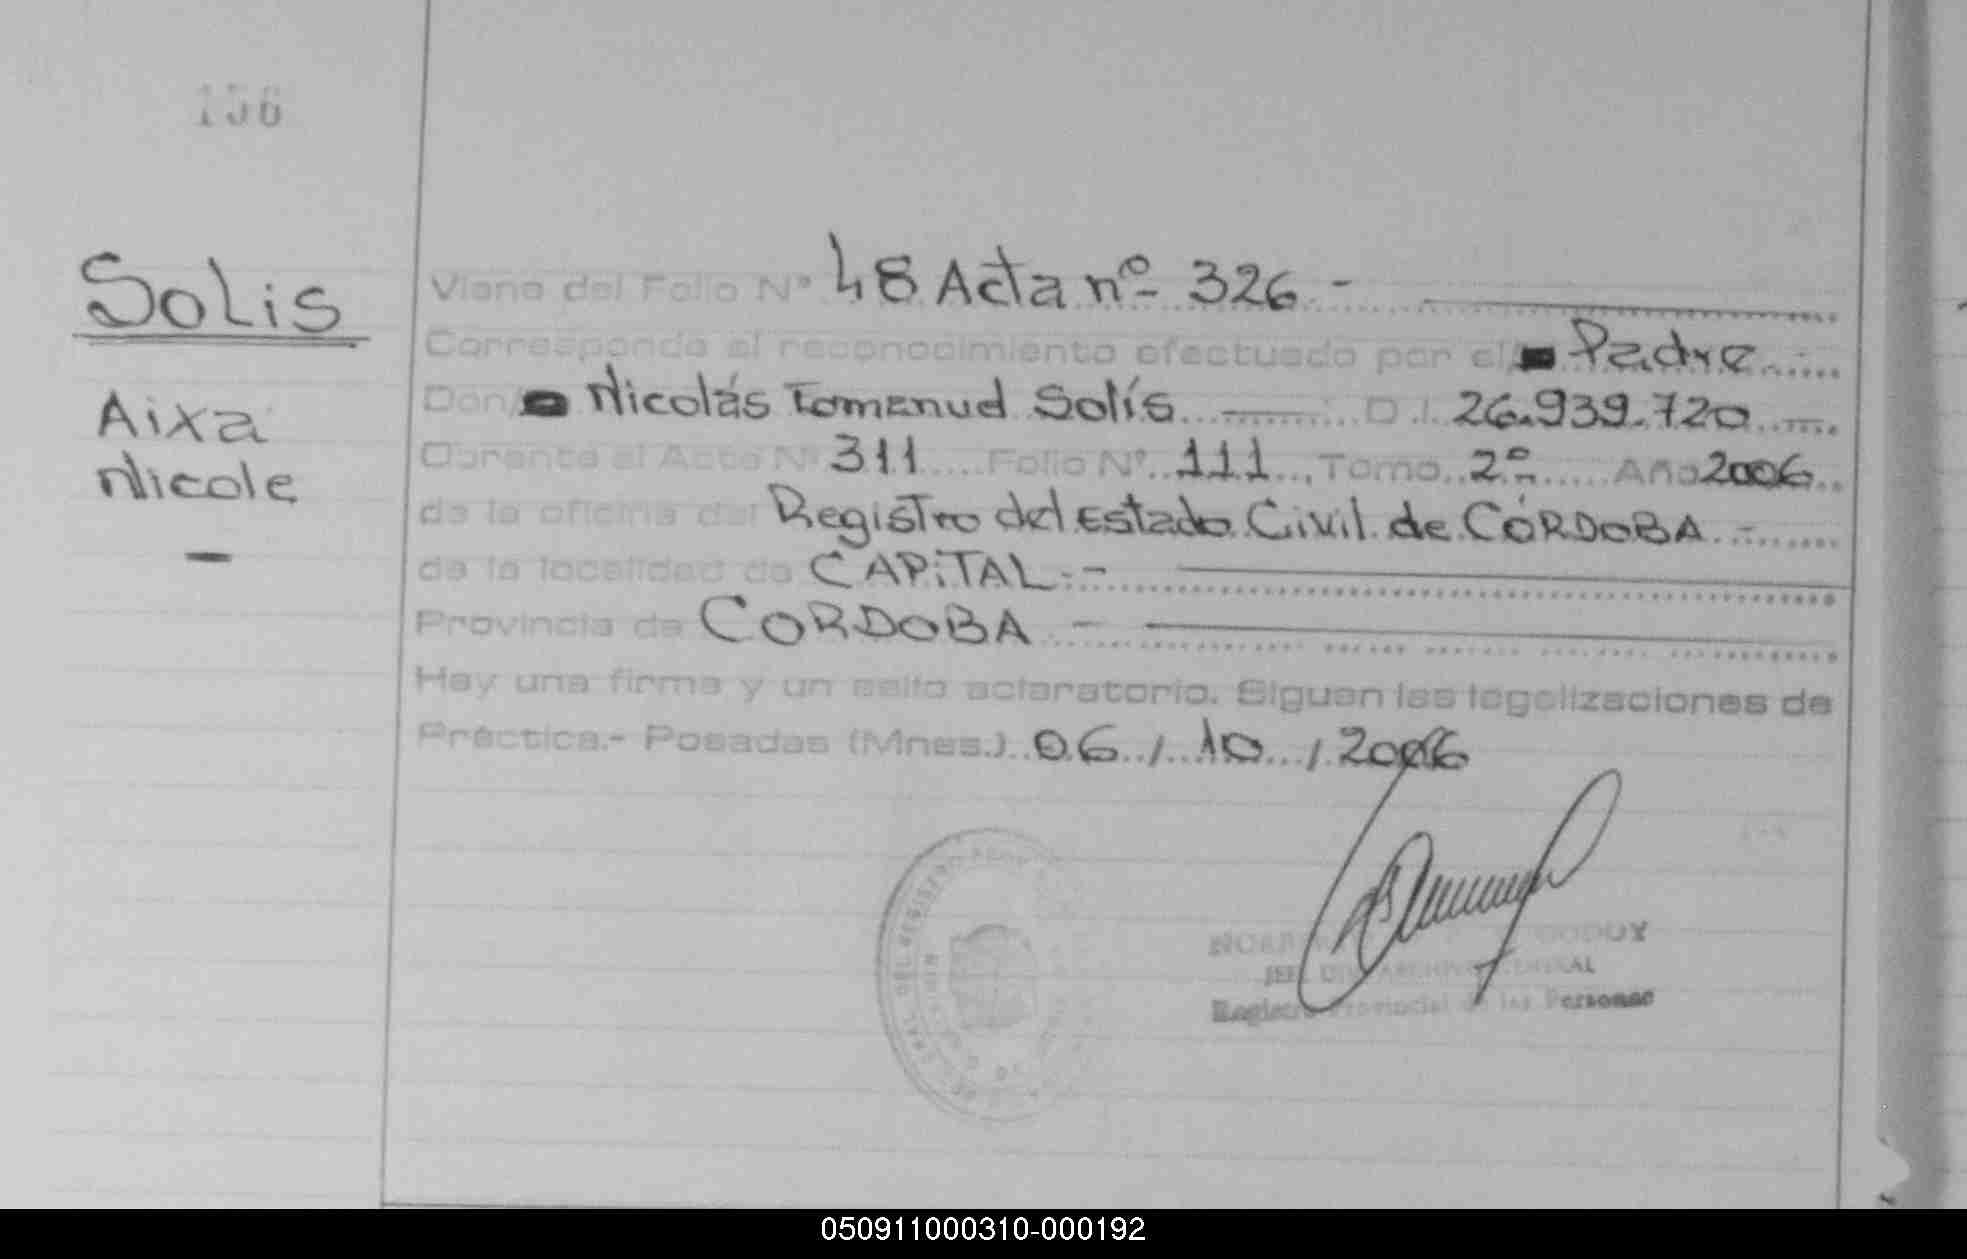 156
Solis
Aixa
Nicole
-
Viene del Folio Nº 48 Acta nº 326.-
Corresponde al reconocimiento efectuado por el Padre
Don/ Nicolás Tomenud Solís D.I. 26.939.720
Obrante al Acta Nº 311 Folio Nº 111 Tomo 2º Año 2006
de la oficina del Registro del Estado Civil de CÓRDOBA.-
de la localidad de CAPiTAL.-
Provincia de CORDOBA.-
Hay una firma y un sello aclaratorio. Siguen las legalizaciones de
Práctica.- Posadas (Mnes.) 06 / 10 / 2006
GODOY
ARCHIVO GENERAL
Registro Provincial de las Personas
050911000310-000192